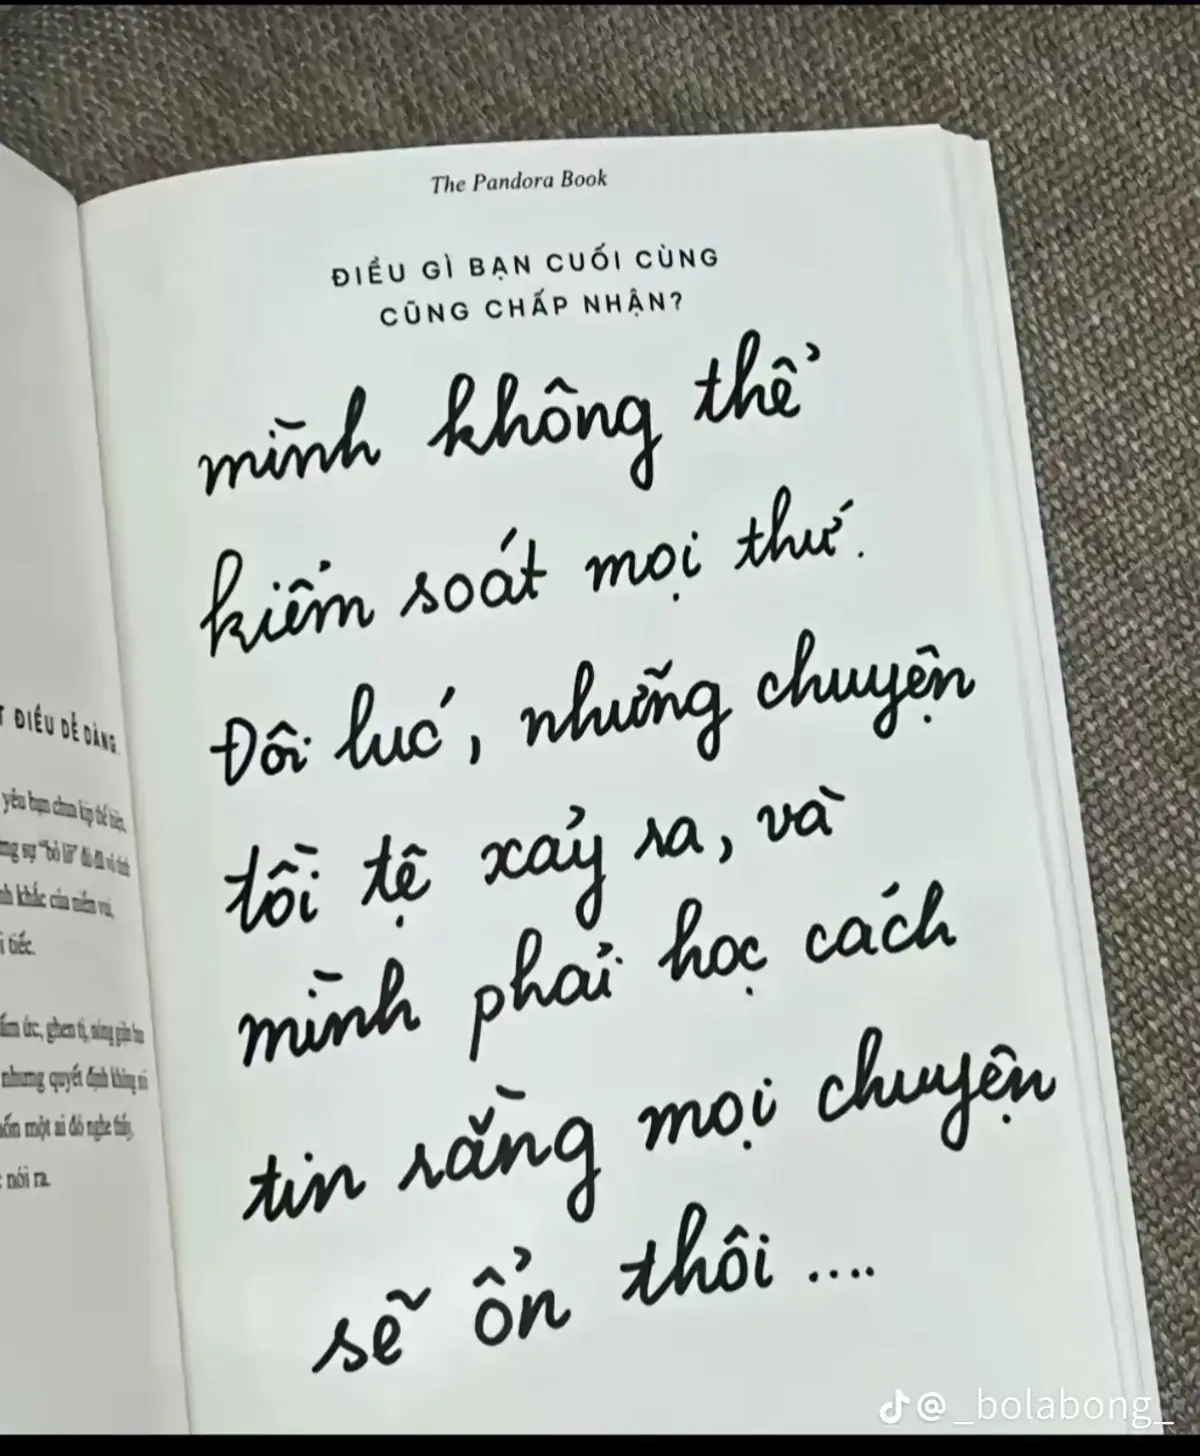 The Pandora Book
ĐIỀU GÌ BẠN CUỐI CÙNG
CŨNG CHẤP NHẬN?
mình không thể
kiểm soát mọi thứ.
Đôi lúc, những chuyện
tồi tệ xảy ra, và
mình phải học cách
tin rằng mọi chuyện
sẽ ổn thôi ....
ĐIỀU DỄ DÀNG.
yêu bạn chưa kịp thể hiện,
sự "bỏ lỡ" đó đã vô tình
khắc của niềm vui,
tiếc.
ức, ghen tị, nóng giận
nhưng quyết định không
một ai đó nghe thấy,
nói ra.
@_bolabong_